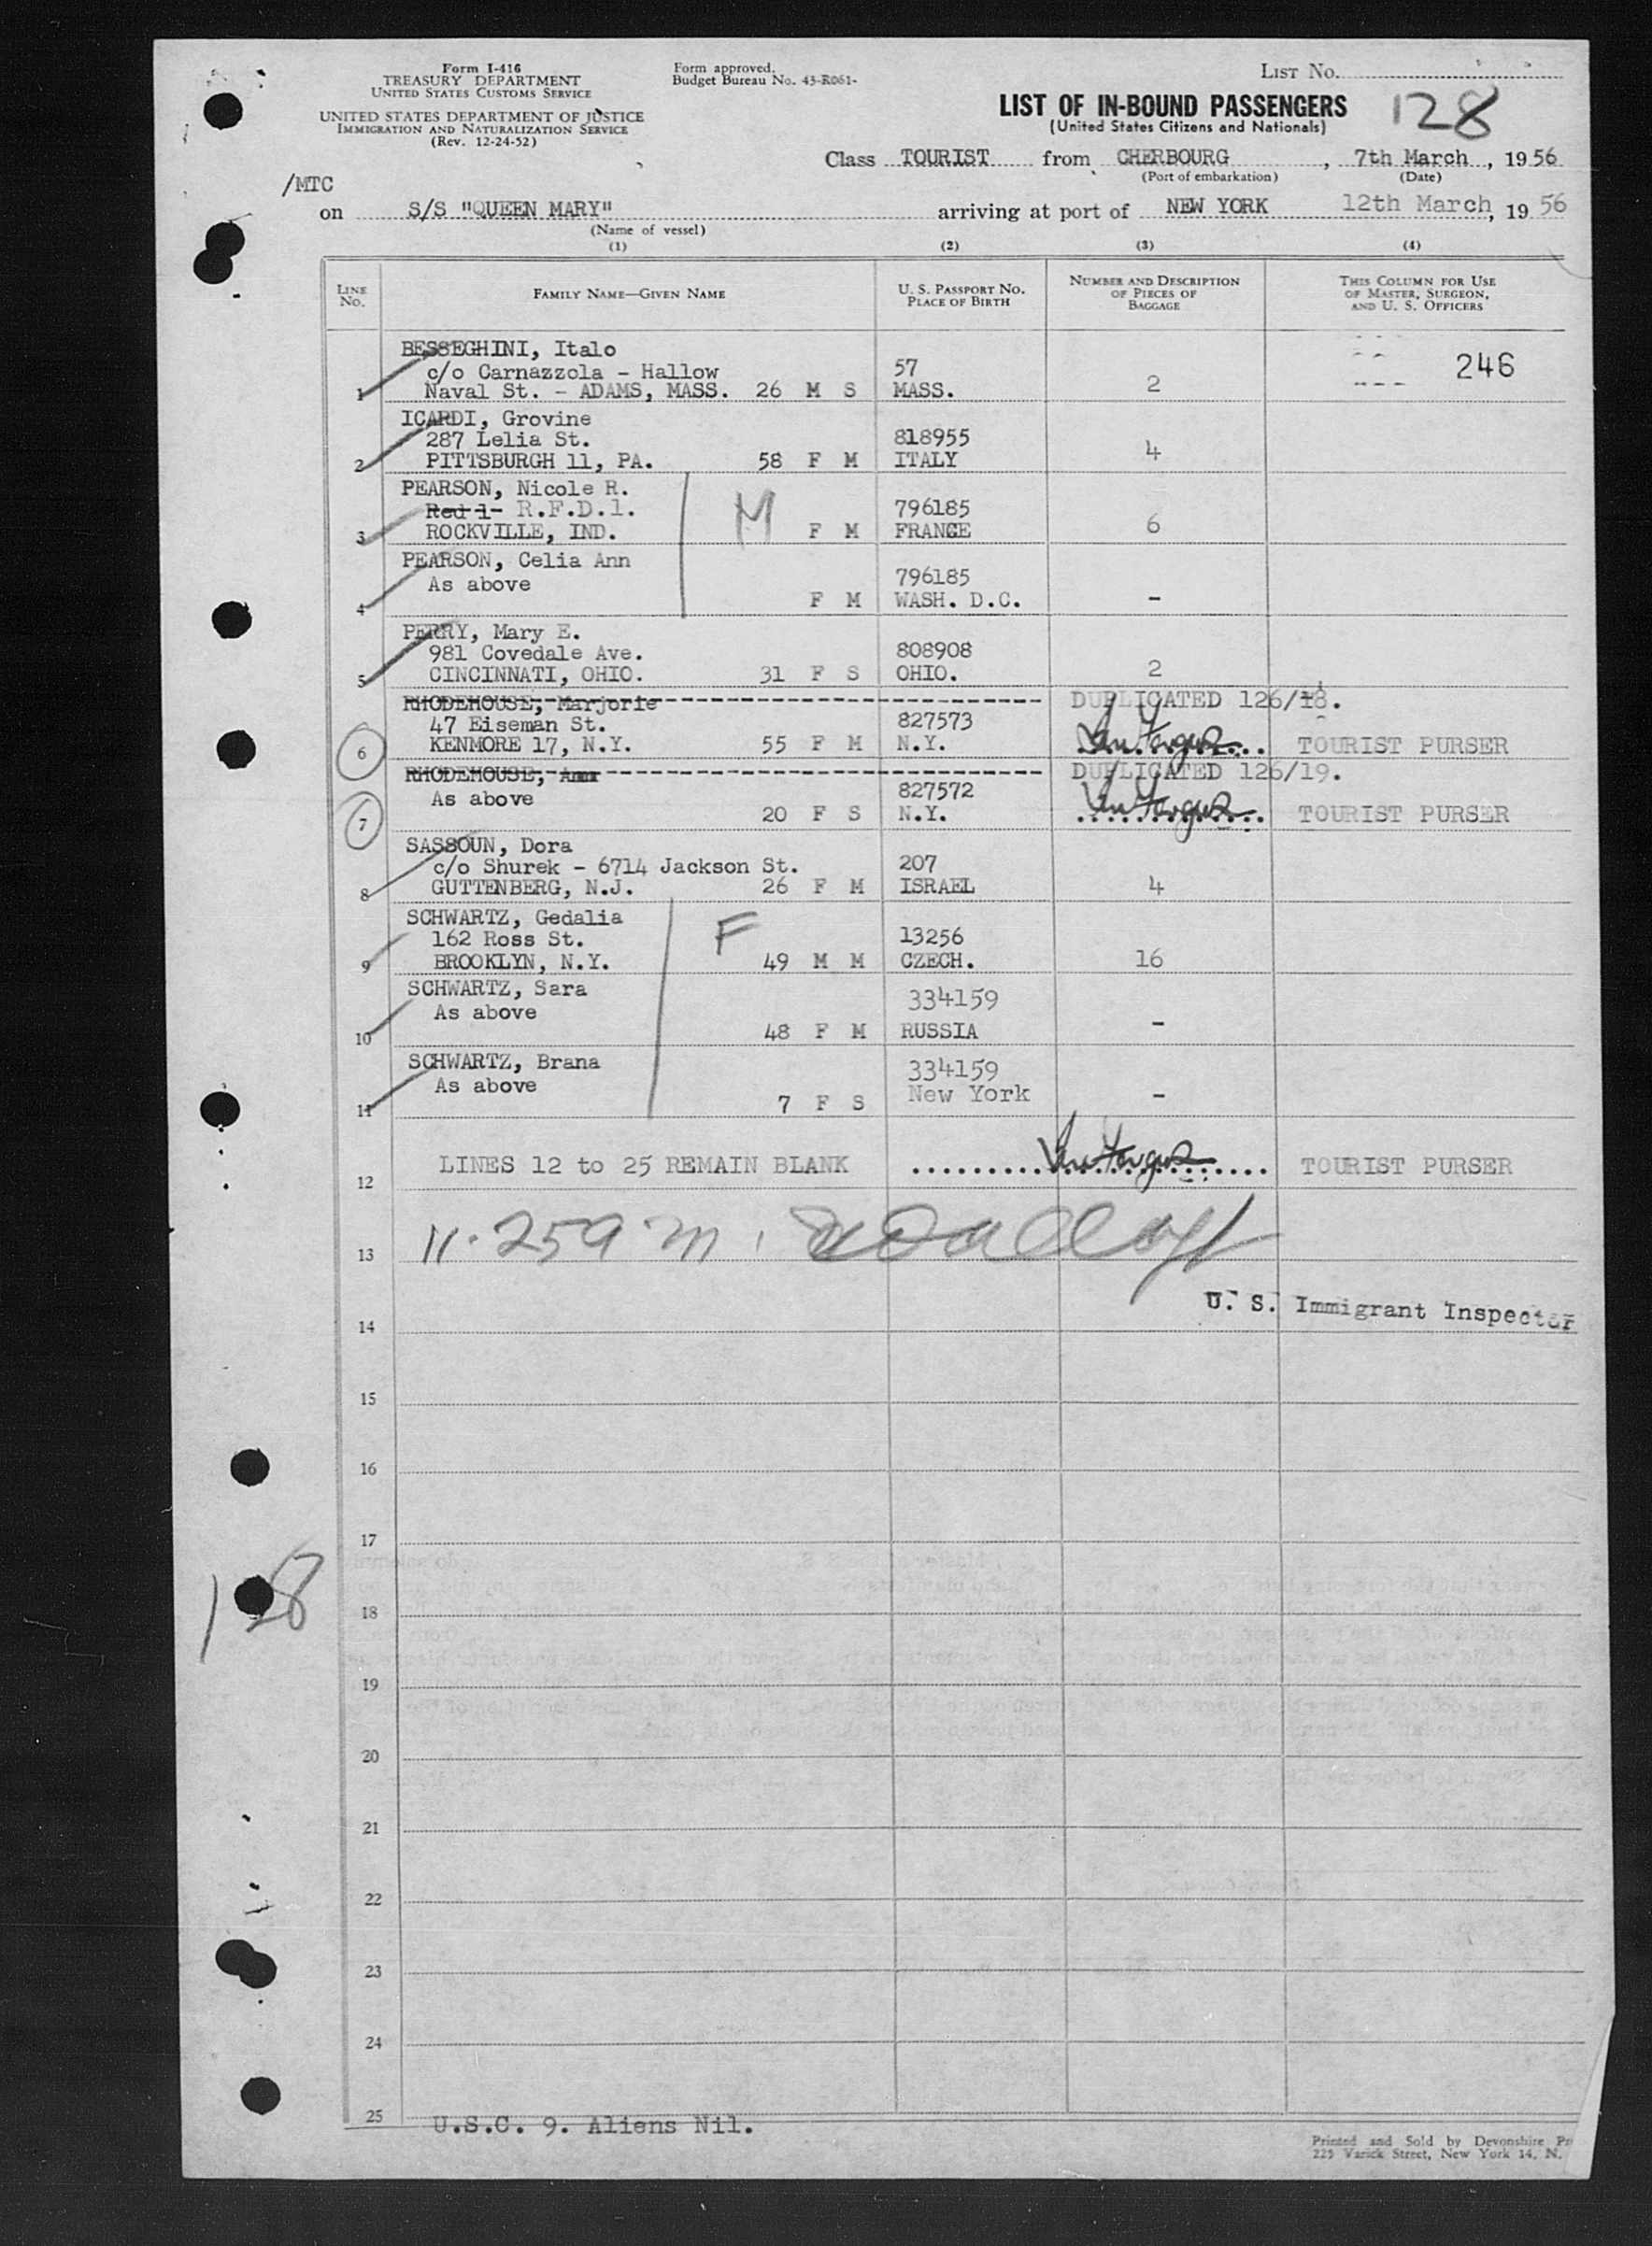 Form I-416
TREASURY DEPARTMENT
UNITED STATES CUSTOMS SERVICE
UNITED STATES DEPARTMENT OF JUSTICE
IMMIGRATION AND NATURALIZATION SERVICE
(Rev. 12-24-52)
Form approved.
Budget Bureau No. 43-R061-
LIST NO.
LIST OF IN-BOUND PASSENGERS
128
(United States Citizens and Nationals)
Class TOURIST from CHERBOURG, 7th March, 1956
(Port of embarkation) (Date)
/MTC
on S/S "QUEEN MARY" arriving at port of NEW YORK 12th March, 1956
(Name of vessel)
(1) (2) (3) (4)
LINE NO.
FAMILY NAME—GIVEN NAME
U. S. PASSPORT NO.
PLACE OF BIRTH
NUMBER AND DESCRIPTION
OF PIECES OF
BAGGAGE
THIS COLUMN FOR USE
OF MASTER, SURGEON,
AND U. S. OFFICERS
BESSEGHINI, Italo
c/o Carnazzola - Hallow 57 246
1 Naval St. - ADAMS, MASS. 26 M S MASS. 2
ICARDI, Grovine
287 Lelia St. 818955
2 PITTSBURGH 11, PA. 58 F M ITALY 4
PEARSON, Nicole R.
Red 1- R.F.D.1. M 796185
3 ROCKVILLE, IND. F M FRANCE 6
PEARSON, Celia Ann
As above 796185
4 F M WASH. D.C. -
PERRY, Mary E.
981 Covedale Ave. 808908
5 CINCINNATI, OHIO. 31 F S OHIO. 2
RHODEHOUSE, Marjorie DUPLICATED 126/18.
47 Eiseman St. 827573
6 KENMORE 17, N.Y. 55 F M N.Y. TOURIST PURSER
RHODEHOUSE, Ann DUPLICATED 126/19.
As above 827572
7 20 F S N.Y. TOURIST PURSER
SASSOUN, Dora
c/o Shurek - 6714 Jackson St. 207
8 GUTTENBERG, N.J. 26 F M ISRAEL 4
SCHWARTZ, Gedalia F
162 Ross St. 13256
9 BROOKLYN, N.Y. 49 M M CZECH. 16
SCHWARTZ, Sara 334159
As above
10 48 F M RUSSIA -
SCHWARTZ, Brana 334159
As above New York
11 7 F S -
LINES 12 to 25 REMAIN BLANK TOURIST PURSER
12
13
U. S. Immigrant Inspector
14
15
16
17
128
18
19
20
21
22
23
24
25
U.S.C. 9. Aliens Nil.
Printed and Sold by Devonshire
225 Varick Street, New York 14, N.